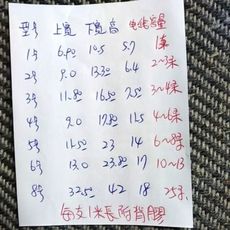 型号 上寬 下寬 高 电线容量
1号 6.90 10.5 5.7 1条
2号 9.0 13.30 6.4 2~3条
3号 11.80 16.50 7.50 3~4条
4号 9.0 17.80 11.5 4~6条
5号 11.50 23 14 6~8条
6号 13.0 23.80 17 10~13
8号 32.50 42 18 25条
每支1米長附背膠